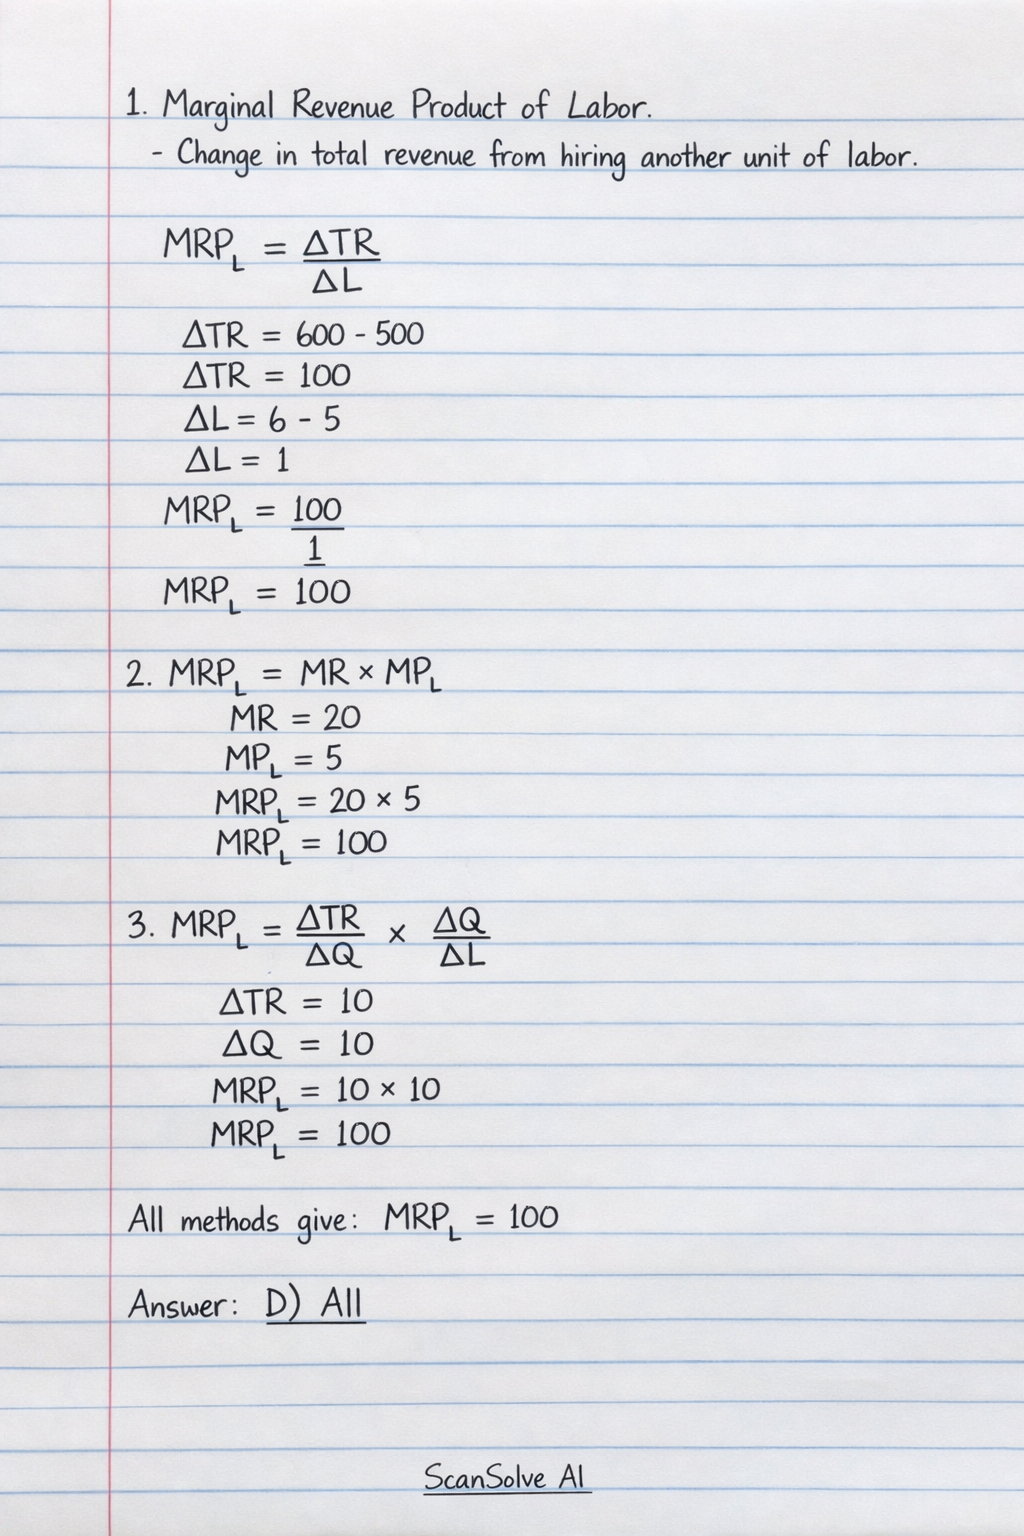 1. Marginal Revenue Product of Labor.
- Change in total revenue from hiring another unit of labor.
MRP_L = ΔTR/ΔL
ΔTR = 600 - 500
ΔTR = 100
ΔL = 6 - 5
ΔL = 1
MRP_L = 100/1
MRP_L = 100
2. MRP_L = MR × MP_L
MR = 20
MP_L = 5
MRP_L = 20 × 5
MRP_L = 100
3. MRP_L = ΔTR/ΔQ × ΔQ/ΔL
ΔTR = 10
ΔQ = 10
MRP_L = 10 × 10
MRP_L = 100
All methods give: MRP_L = 100
Answer: D) All
ScanSolve AI